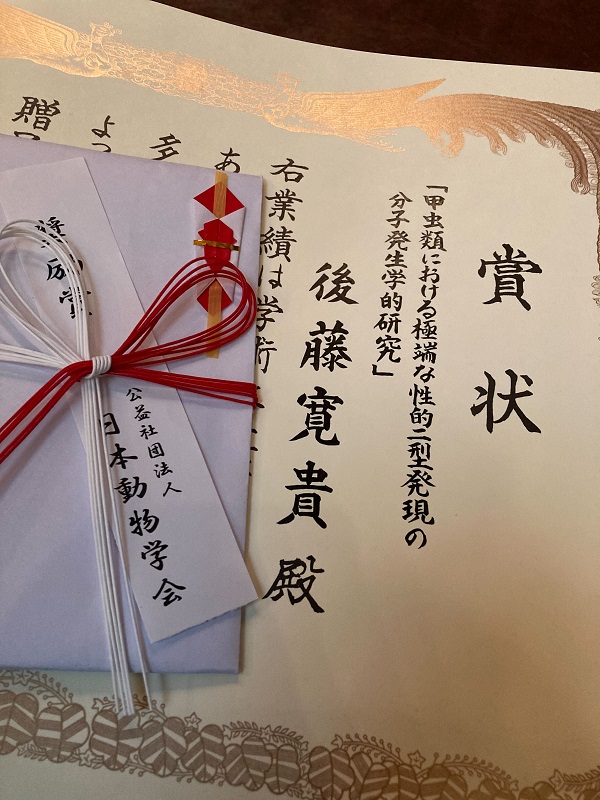 賞状
「甲虫類における極端な性的二型発現の
分子発生学的研究」
後藤寛貴殿
右業績は学術
あ
多
よっ
贈
奨励賞
公益社団法人
日本動物学会